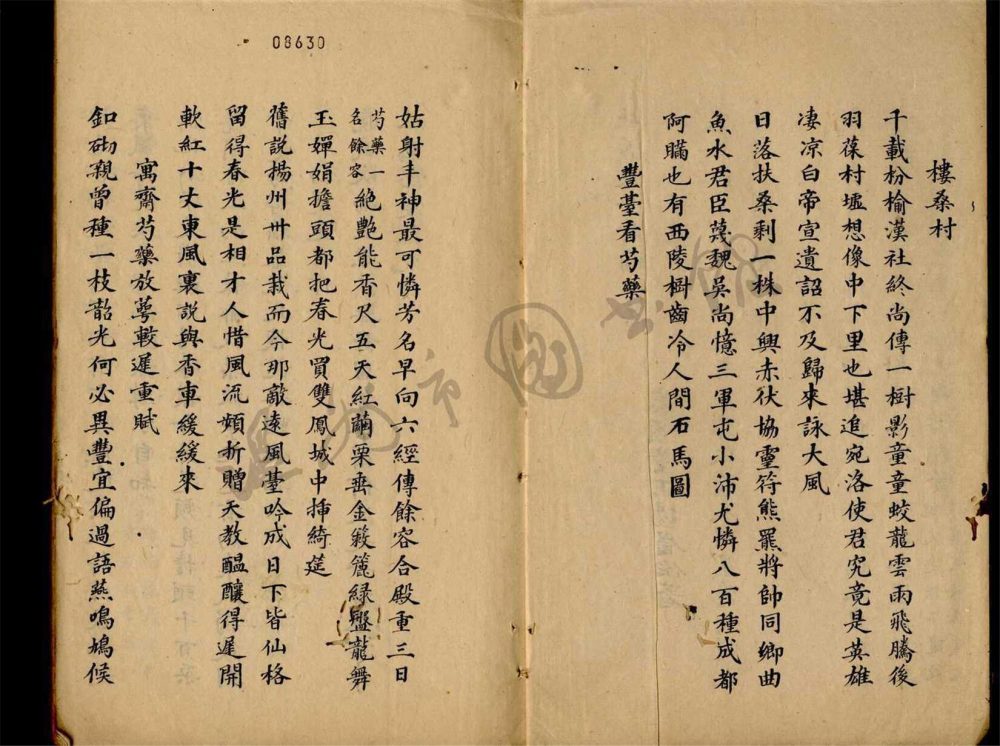 08630
樓桑村
千載枌榆漢社終尚傳一樹影童童蛟龍雲雨飛騰後
羽葆村墟想像中下里也堪追宛洛使君究竟是英雄
凄凉白帝宣遺詔不及歸來詠大風
日落扶桑剩一株中興赤伏協靈符熊羆將帥同鄉曲
魚水君臣蔑魏吳尚憶三軍屯小沛尤憐八百種成都
阿瞞也有西陵樹齒冷人間石馬圖
豐臺看芍藥
姑射丰神最可憐芳名早向六經傳餘容合殿重三日
芍藥一名餘容
絶艷能香尺五天紅繭栗垂金籢簏綠盤龍舞
玉嬋娟擔頭都把春光買雙鳳城中揷綺筵
舊說楊州卅品栽而今那敵遠風臺吟成日下皆仙格
留得春光是相才人惜風流頻折贈天教醖釀得遲開
軟紅十丈東風裏說與香車緩緩來
寓齋芍藥放蕚較遲重賦
釦砌親曾種一枝韶光何必異豐宜偏過語燕鳴鳩候